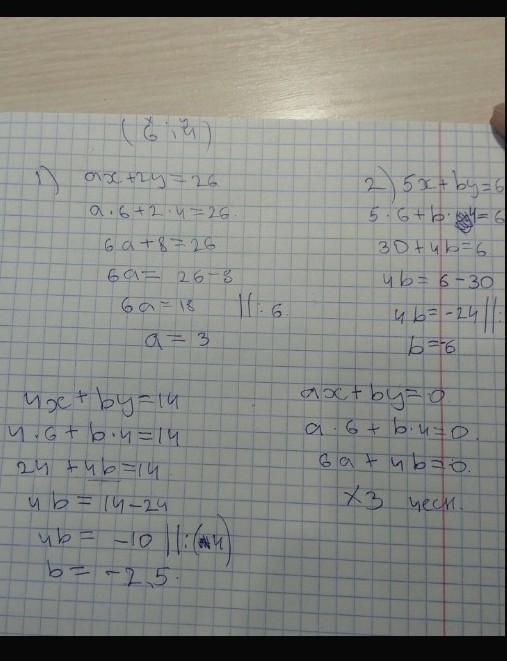 (6 ; 4)
1) ax+2y=26
a·6+2·4=26
6a+8=26
6a= 26-8
6a=18 ||:6
a= 3
2) 5x+by=6
5·6+b·4=6
30+4b=6
4b=6-30
4b=-24||:
b=-6
4x+by=14
4·6+b·4=14
24+4b=14
4b=14-24
4b= -10||:(4)
b= -2,5.
ax+by=0
a·6+b·4=0.
6a+4b=0.
ХЗ чесн.